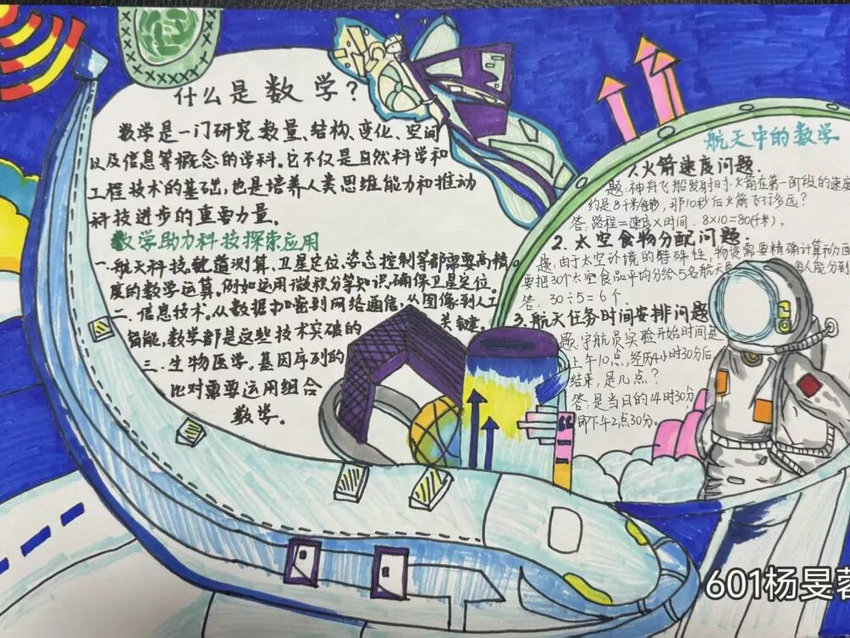 什么是数学？
数学是一门研究数量、结构、变化、空间
以及信息等概念的学科。它不仅是自然科学和
工程技术的基础，也是培养人类思维能力和推动
科技进步的重要力量。
数学助力科技探索应用
一.航天科技。轨道测算、卫星定位、姿态控制等都需要高精
度的数学运算。例如运用微积分等知识，确保卫星定位。
二.信息技术。从数据加密到网络通信，从图像到人工
智能，数学都是这些技术突破的关键。
三.生物医学。基因序列的
比对需要运用组合
数学。
航天中的数学
1.火箭速度问题.
题:神舟飞船发射时,火箭在第一阶段的速度
约是8千米每秒,那10秒后火箭飞行多远？
答:路程=速度×时间. 8×10=80(千米).
2.太空食物分配问题.
题:由于太空环境的特殊性,物资需要精确计算和分配
要把30个太空食品平均分给5名航天员 每人能分到
答: 30÷5=6个.
3.航天任务时间安排问题
题:宇航员实验开始时间是
上午10点,经历4小时30分后
结束,是几点？
答:是当日的14时30分
即下午2点30分.
601杨旻蓉